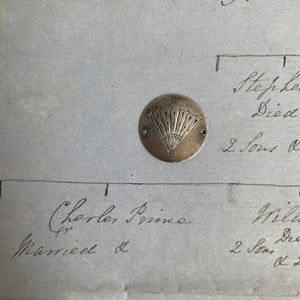 Stephe
Died
2 Sons &
Charles Prime
Married &
Will
Die
2 Sons
&